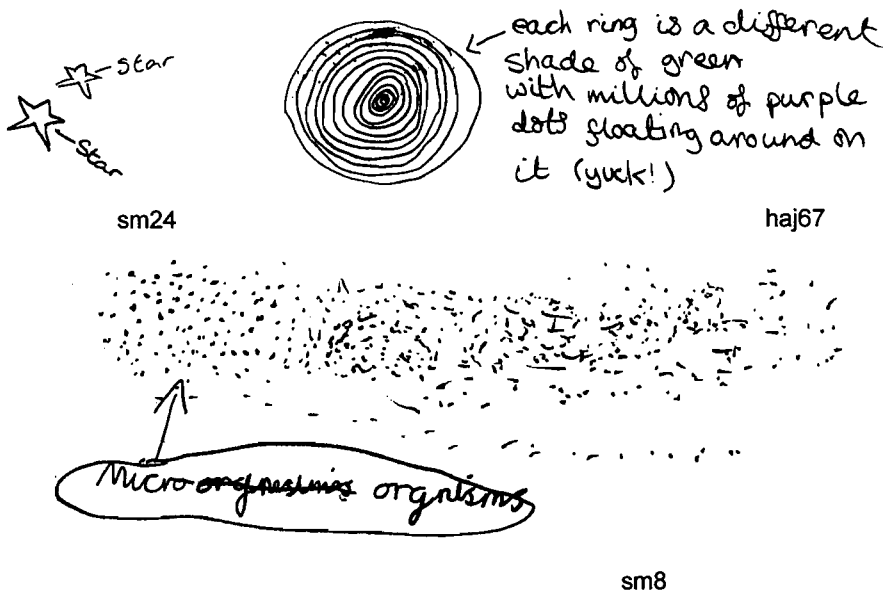 Star
Star
each ring is a different
shade of green
with millions of purple
dots floating around on
it (yuck!)
sm24
haj67
Micro orgnisms
sm8